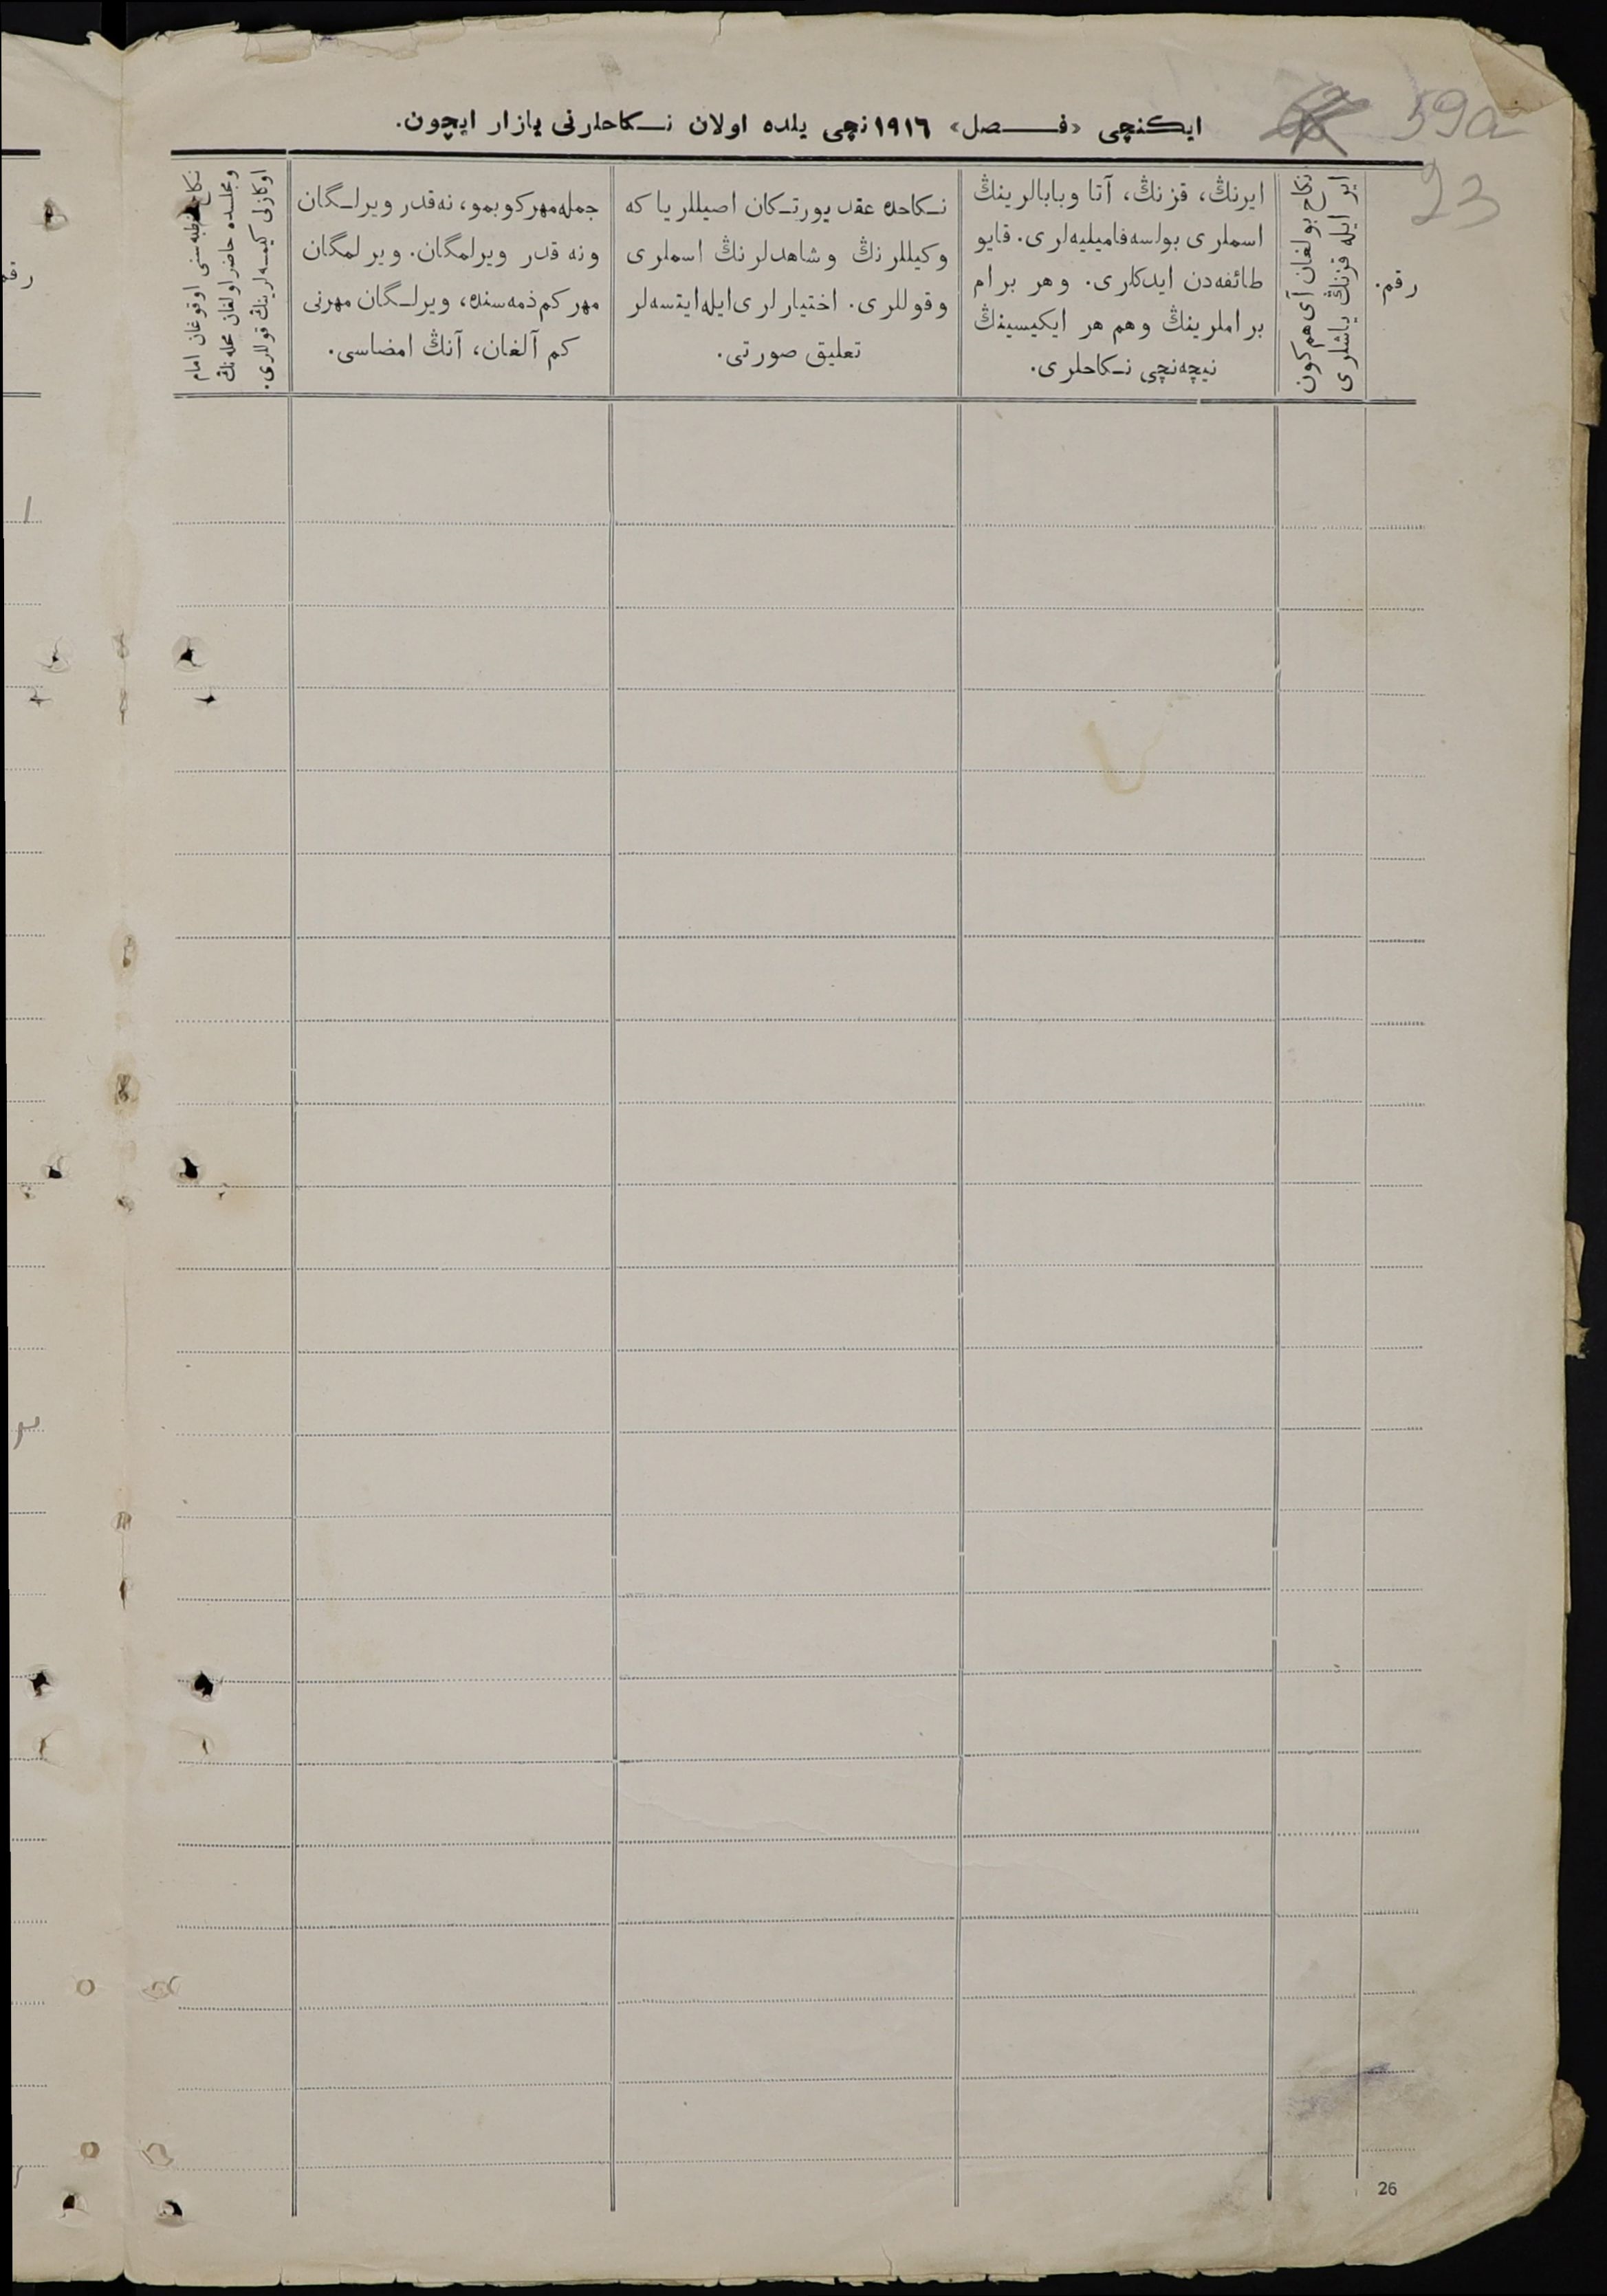 59a
23
ایكنچی «فــصل» ١٩١٦ نچی یلده اولان نـكاحلرنی یازار ایچون.
رقم.
ایر ایله قزنڭ یاشلری
نكاح بولغان آی هم كون
ایرنڭ، قزنڭ، آتا وبابالرینڭ
اسملری بولسه فامیلیه‌لری. قایو
طائفه‌دن ایدكلری. وهر برام
براملرینڭ وهم هر ایكیسینڭ
نیچه‌نچی نـكاحلری.
نـكاحده عقد یورتـكان اصیللر یا كه
وكیللرنڭ وشاهدلرنڭ اسملری
وقوللری. اختیارلری ایله ایتسه‌لر
تعلیق صورتی.
جمله مهر كوبمو، نه قدر ویرلـگان
ونه قدر ویرلمگان. ویرلمگان
مهر كم ذمه‌سنده، ویرلـگان مهرنی
كم آلغان، آنڭ امضاسی.
نكاح خطبه‌سنی اوقوغان امام
ومجلسده حاضر اولغان محله‌نڭ
اوكازلی كیمسه‌لرینڭ قوللری.
26
رقم